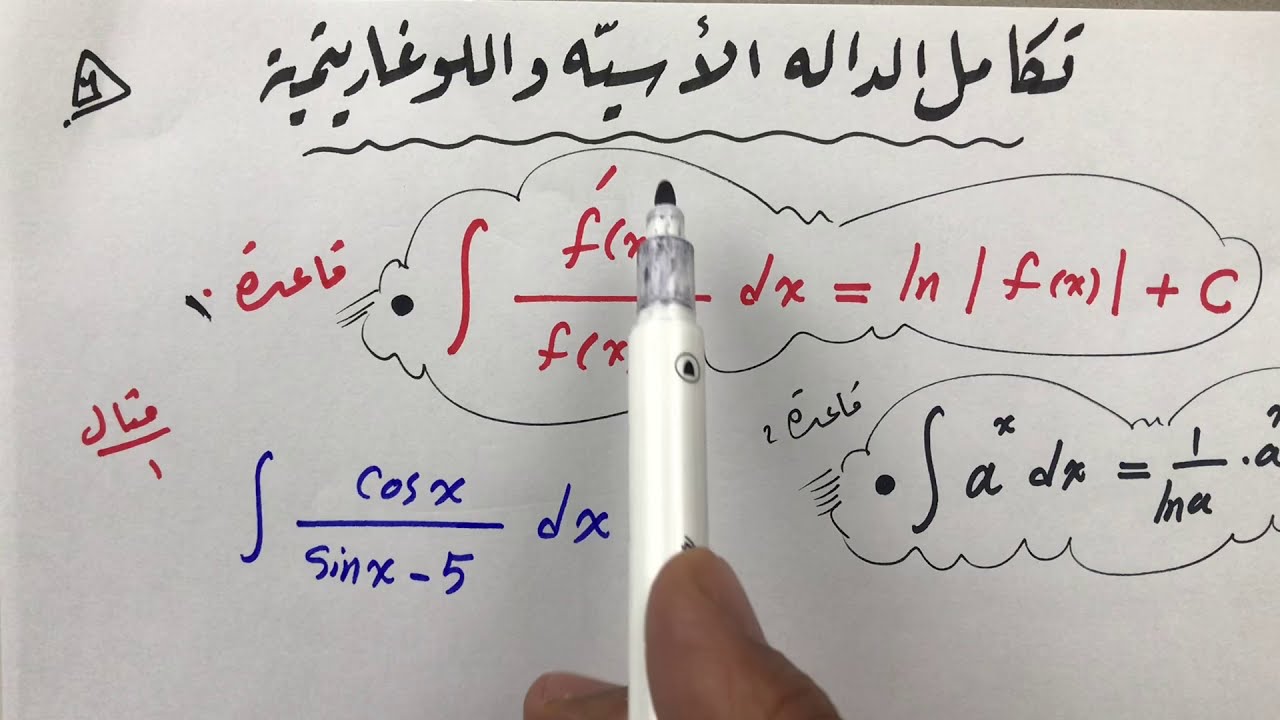 تكامل الداله الأسيّه واللوغاريتمية
قاعدة ١
∫ f′(x) / f(x) dx = ln | f(x) | + C
قاعدة ٢
∫ a^x dx = 1/ln a · a^x
مثال ١
∫ cos x / sin x – 5 dx